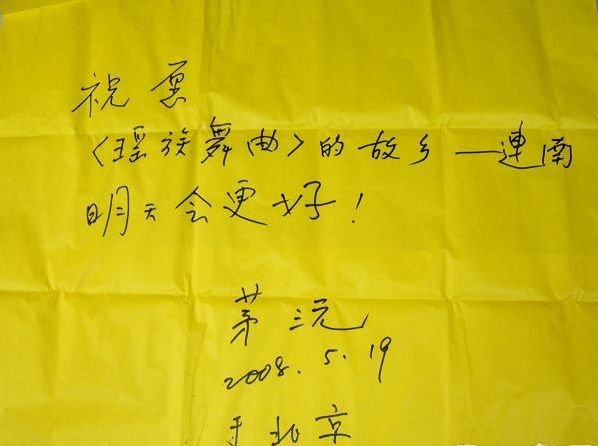 祝愿
〈瑶族舞曲〉的故乡—連南
明天会更好！
茅沅
2008.5.19
于北京